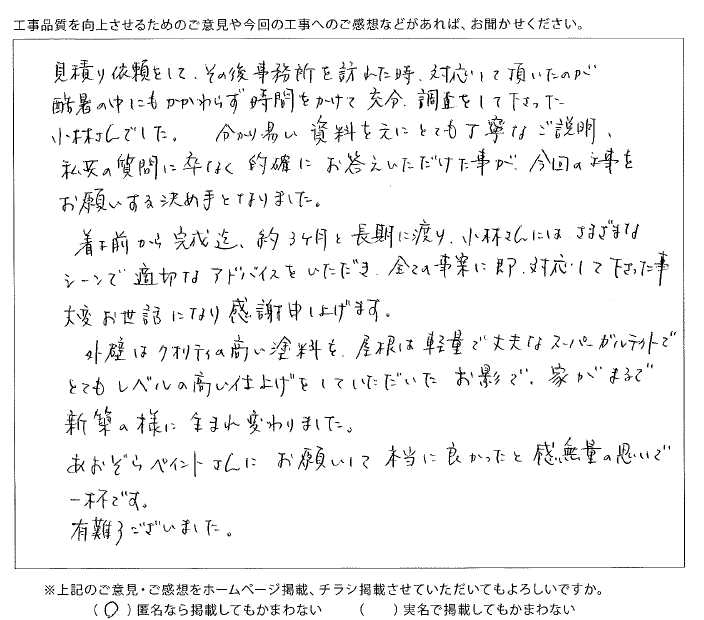 工事品質を向上させるためのご意見や今回の工事へのご感想などがあれば、お聞かせください。
見積り依頼をして、その後事務所を訪れた時、対応して頂いたのが
酷暑の中にもかかわらず時間をかけて充分、調査をして下さった
小林さんでした。 分かり易い資料を元にとても丁寧なご説明、
私共の質問に卒なく的確にお答えいただけた事が、今回の工事を
お願いする決め手となりました。
着工前から完成迄、約3ヶ月と長期に渡り、小林さんには、さまざまな
シーンで適切なアドバイスをいただき、全ての事案に即、対応して下さった事
大変お世話になり感謝申し上げます。
外壁はクオリティの高い塗料を、屋根は軽量で丈夫なスーパーガルテクトで
とてもレベルの高い仕上げをしていただいたお影で、家がまるで
新築の様に生まれ変わりました。
あおぞらペイントさんにお願いして本当に良かったと感無量の思いで
一杯です。
有難うございました。
※上記のご意見・ご感想をホームページ掲載、チラシ掲載させていただいてもよろしいですか。
(○)匿名なら掲載してもかまわない ( )実名で掲載してもかまわない